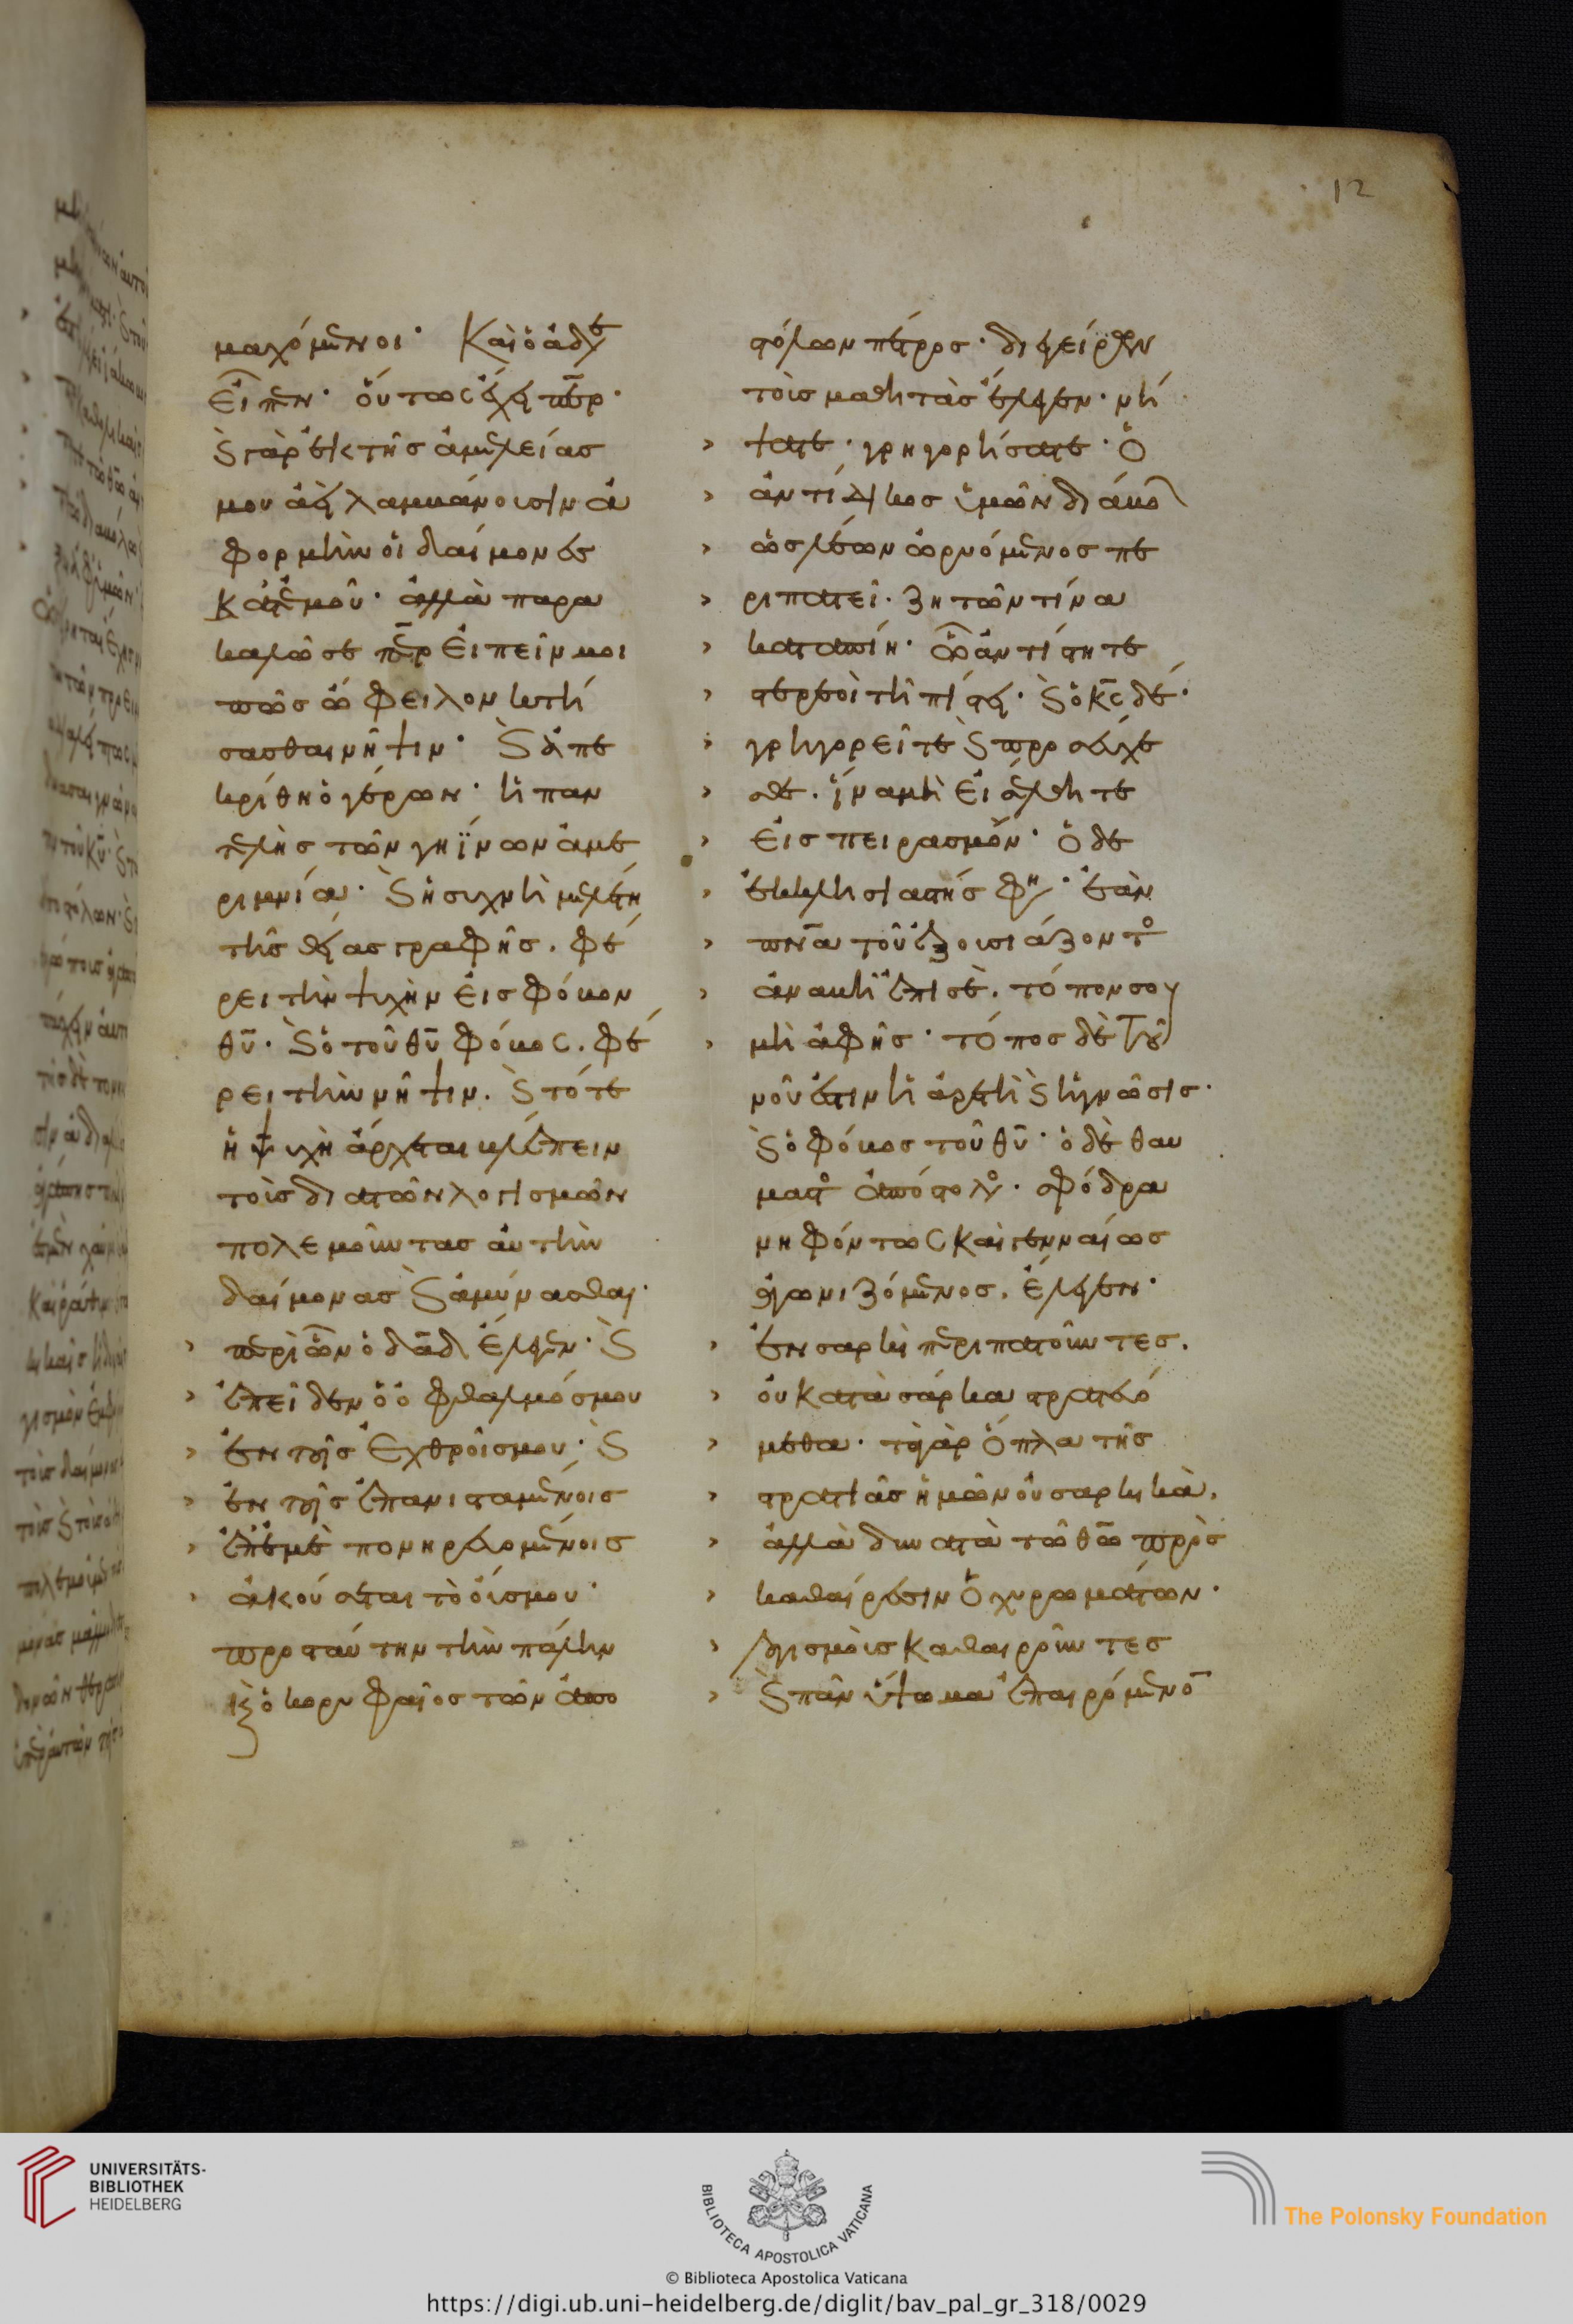 μαχόμενοι· Καὶ ὁ ἀδε
εἶπεν· οὕτως ἔχει περ·
ϛ γὰρ ἐκ τῆς ἀμελείας
μου ἀεὶ λαμβάνουσιν ἀ
φορμὴν οἱ δαίμονες
κατ' ἐμοῦ· ἀλλὰ παρα
καλῶ σε περ εἰπεῖν μοι
πῶς ὤφειλον κτή
σασθαι νῆψιν· ϛ ἀπε
κρίθη ὁ γέρων· ἡ παν
τελὴς τῶν γηΐνων ἀμε
ριμνία· ϛ ἡ συχνὴ μελέτη
τῆς θείας γραφῆς· φέ
ρει τὴν ψυχὴν εἰς φόβον
θυ· ϛ ὁ τοῦ θυ φόβος· φέ
ρει τὴν νῆψιν· ϛ τότε
ἡ ψυχὴ ἄρχεται βλέπειν
τοὺς διὰ τῶν λογισμῶν
πολεμοῦντας αὐτὴν
δαίμονας ϛ ἀμύνασθαι·
περὶ ὧν ὁ δαδ ἔλεγεν· ϛ
ἐπεῖδεν ὁ ὀφθαλμός μου
ἐν τοῖς ἐχθροῖς μου· ϛ
ἐν τοῖς ἐπανισταμένοις
ἐπ' ἐμὲ πονηρευομένοις
ἀκούσεται τὸ οὖς μου·
προσταύτην τὴν πάλην
καὶ ὁ κορυφαῖος τῶν ἀπο
12
στόλων πέτρος· διεγείρων
τοὺς μαθητὰς ἔλεγεν· νή
ψατε· γρηγορήσατε· ὁ
ἀντίδικος ὑμῶν διάβολ
ὡς λέων ὠρυόμενος πε
ριπατεῖ· ζητῶν τίνα
καταπίη· ᾧ ἀντίστητε
στερεοὶ τῇ πίστει· ϛ ὁ κς δέ·
γρηγορεῖτε ϛ προσεύχε
σθε· ἵνα μὴ εἰσέλθητε
εἰς πειρασμόν· ὁ δὲ
ἐκκλησιαστής φη· ἐὰν
πνα τοῦ ἐξουσιάζοντο
ἀναβῇ ἐπὶ σέ· τόπον σου
μὴ ἀφῇς· τόπος δὲ τοῦ
νοῦ ἐστιν ἡ ἀρετὴ ϛ ἡ γνῶσις·
ϛ ὁ φόβος τοῦ θυ· ὁ δὲ θαυ
μαστο ἀπόστολο· σφόδρα
νηφόντως καὶ γενναίως
ἀγωνιζόμενος· ἔλεγεν·
ἐν σαρκὶ περιπατοῦντες·
οὐ κατὰ σάρκα στρατευό
μεθα· τὰ γὰρ ὅπλα τῆς
στρατιᾶς ἡμῶν οὐ σαρκικὰ·
ἀλλὰ δυνατὰ τῶ θω πρὸς
καθαίρεσιν ὀχυρωμάτων·
λογισμοὺς καθαιροῦντες
ϛ πᾶν ὕψωμα ἐπαιρόμενο
UNIVERSITÄTS-
BIBLIOTHEK
HEIDELBERG
BIBLIOTECA APOSTOLICA VATICANA
The Polonsky Foundation
© Biblioteca Apostolica Vaticana
https://digi.ub.uni-heidelberg.de/diglit/bav_pal_gr_318/0029